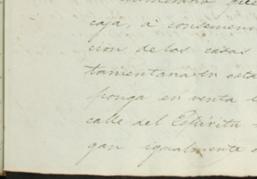 caja, á consecuen
cion de las casas
tamentaria en esta
ponga en venta
calle del Espíritu
gan igualmente